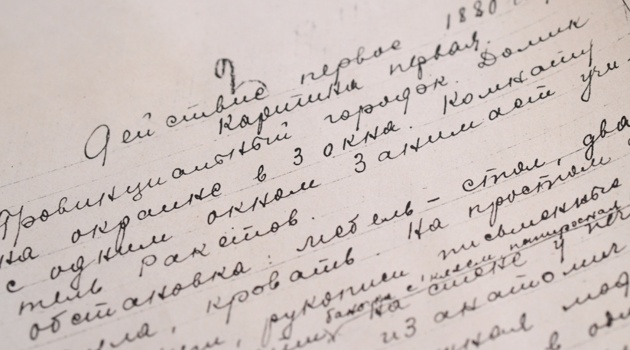 1880
Действие первое
Картина первая.
Провинциальный городок. Домик
на окраине в 3 окна. Комнату
с одним окном занимает учи-
тель Ракетов.
обстановка: мебель – стол, два
кровать. На простом
рукописи письменные
банка с клеем, папиросная
на стене у
из анатомич